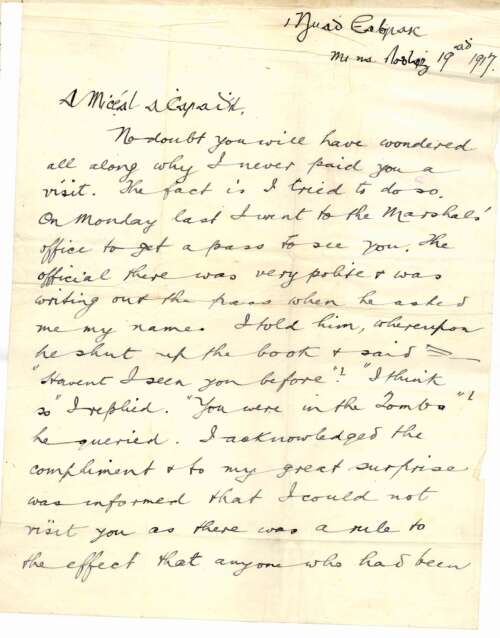 i Nuad Eabrac
mi na Nodlag 19ad 1917.
A Micéal A Carait,
No doubt you will have wondered
all along why I never paid you a
visit. The fact is I tried to do so.
On Monday last I went to the Marshals'
office to get a pass to see you. The
official there was very polite & was
writing out the pass when he asked
me my name. I told him, whereupon
he shut up the book & said —
"Havent I seen you before"? "I think
so" I replied. "You were in the Tombs"?
he queried. I acknowledged the
compliment & to my great surprise
was informed that I could not
visit you as there was a rule to
the effect that anyone who had been